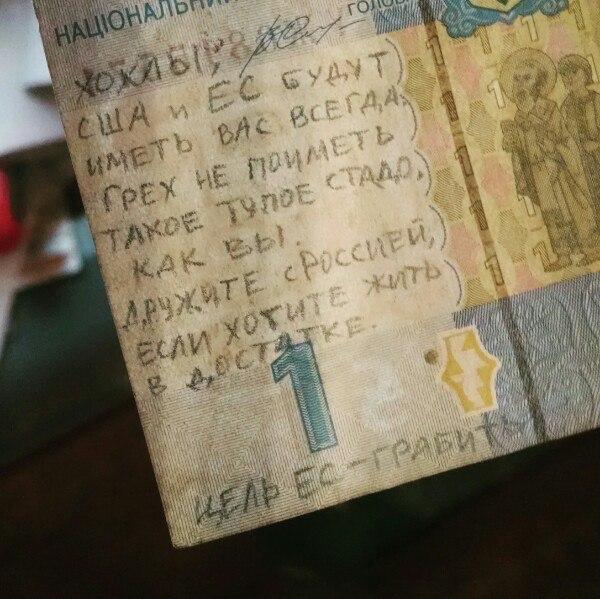 НАЦІОНАЛЬНИЙ
ГОЛОВ
ХОХЛЫ,
США И ЕС БУДУТ
ИМЕТЬ ВАС ВСЕГДА.
ГРЕХ НЕ ПОИМЕТЬ
ТАКОЕ ТУПОЕ СТАДО,
КАК ВЫ.
ДРУЖИТЕ С РОССИЕЙ,
ЕСЛИ ХОТИТЕ ЖИТЬ
В ДОСТАТКЕ.
1
ЦЕЛЬ ЕС-ГРАБИТЬ